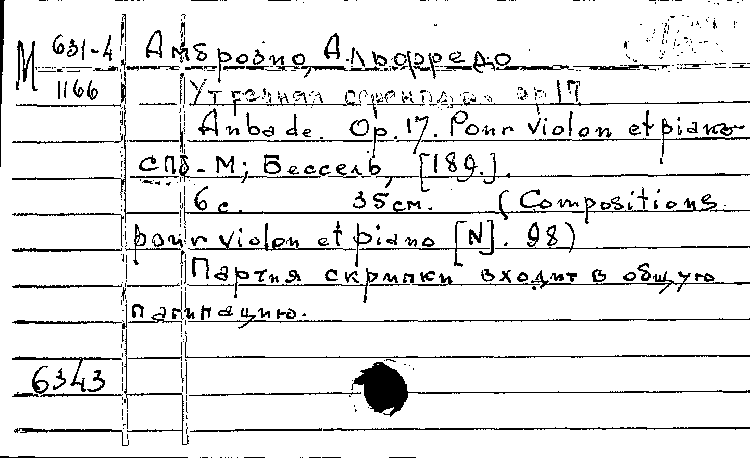 М 631-4
1166
Амброзио, Альфредо
Утренняя серенада. ор 17
Aubade. Op. 17. Pour violon et piano
СПб.-М; Бессель, [189.].
6 с. 35 см. (Compositions
pour violon et piano [N]. 98)
Партия скрипки входит в общую
пагинацию.
6343